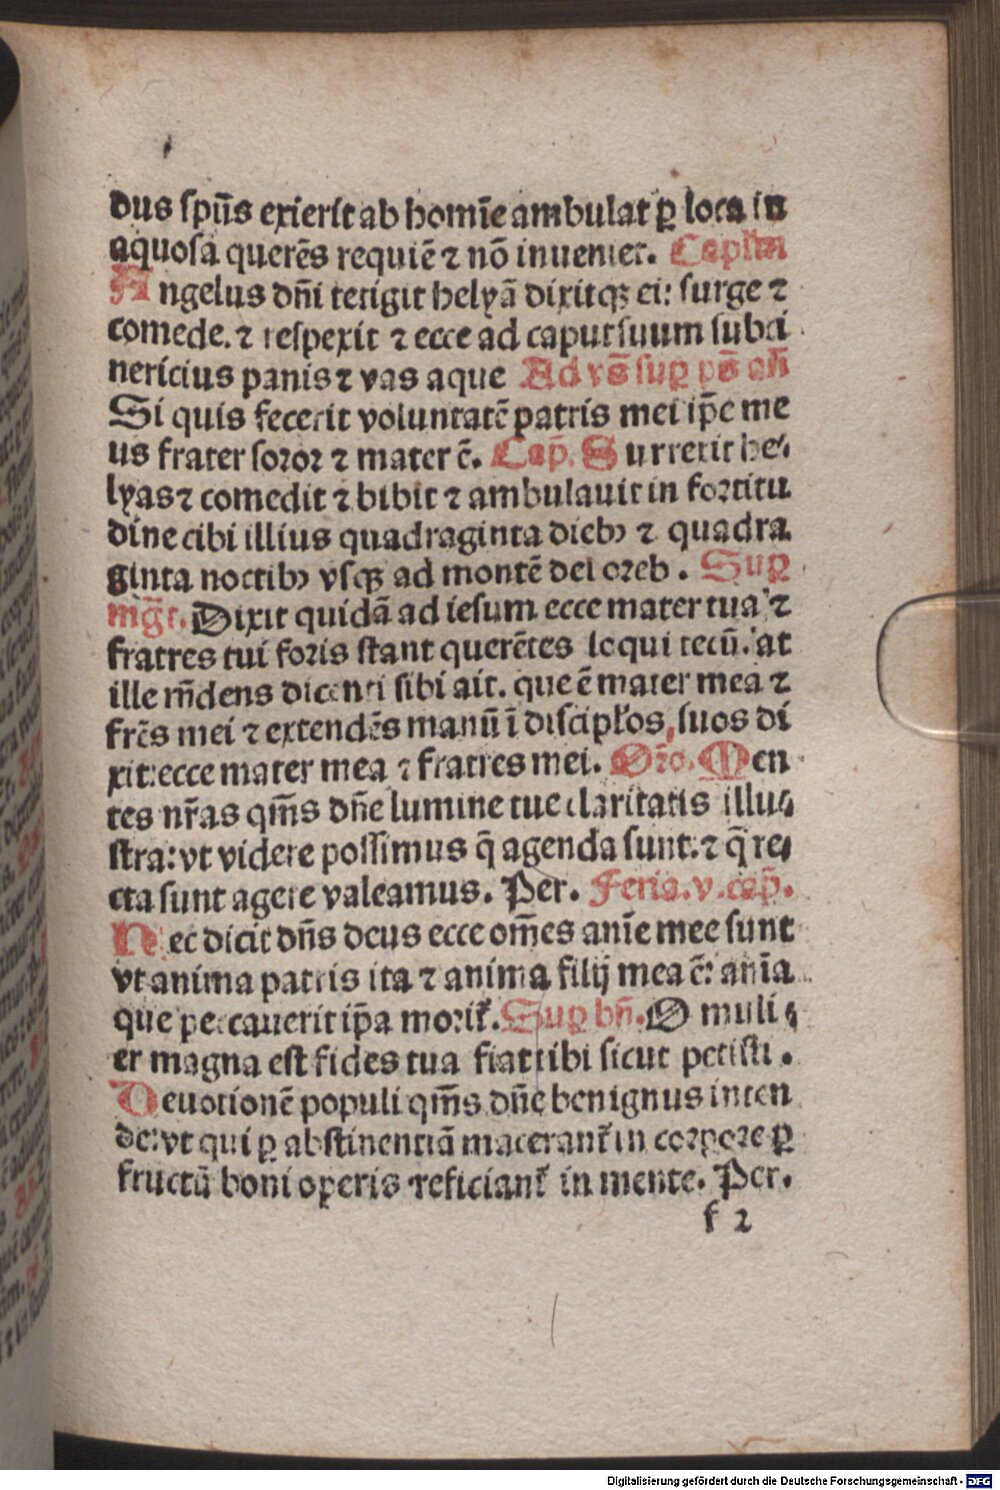 dus spūs exierit ab homīe ambulat ꝑ loca in
aquosa querēs requiē ⁊ nō inueniet. Capl'm
Angelus dn̄i tetigit helyā dixitqꝫ ei: surge ⁊
comede. ⁊ respexit ⁊ ecce ad caput suum subci
nericius panis ⁊ vas aque Ad vs̄ suꝑ ps̄ an̄
Si quis fecerit voluntatē patris mei ip̄e me
us frater soror ⁊ mater ē. Cap̄. Surrexit he⸗
lyas ⁊ comedit ⁊ bibit ⁊ ambulauit in fortitu
dine cibi illius quadraginta dieb⁹ ⁊ quadra
ginta noctib⁹ vsqꝫ ad montē dei oreb. Suꝑ
mḡt. Dixit quidā ad iesum ecce mater tua ⁊
fratres tui foris stant querētes loqui tecū. at
ille rn̄dens dicenti sibi ait. que ē mater mea ⁊
frēs mei ⁊ extendēs manū ī discipl'os suos di
xit: ecce mater mea ⁊ fratres mei. Or̄o. Men
tes nr̄as qm̄s dn̄e lumine tue claritatis illu⸗
stra: vt videre possimus q̄ agenda sunt: ⁊ q̄ re⸗
cta sunt agere valeamus. Per. Feria. v. cap̄.
Hec dicit dn̄s deus ecce om̄es anīe mee sunt
vt anima patris ita ⁊ anima filij mea ē: anīa
que peccauerit ip̄a morit᷑. Suꝑ bn̄. O muli⸗
er magna est fides tua fiat tibi sicut petisti.
Deuotionē populi qm̄s dn̄e benignus inten
de: vt qui ꝑ abstinentiā macerant᷑ in corpore ꝑ
fructū boni operis reficiant᷑ in mente. Per.
f 2
Digitalisierung gefördert durch die Deutsche Forschungsgemeinschaft - DFG